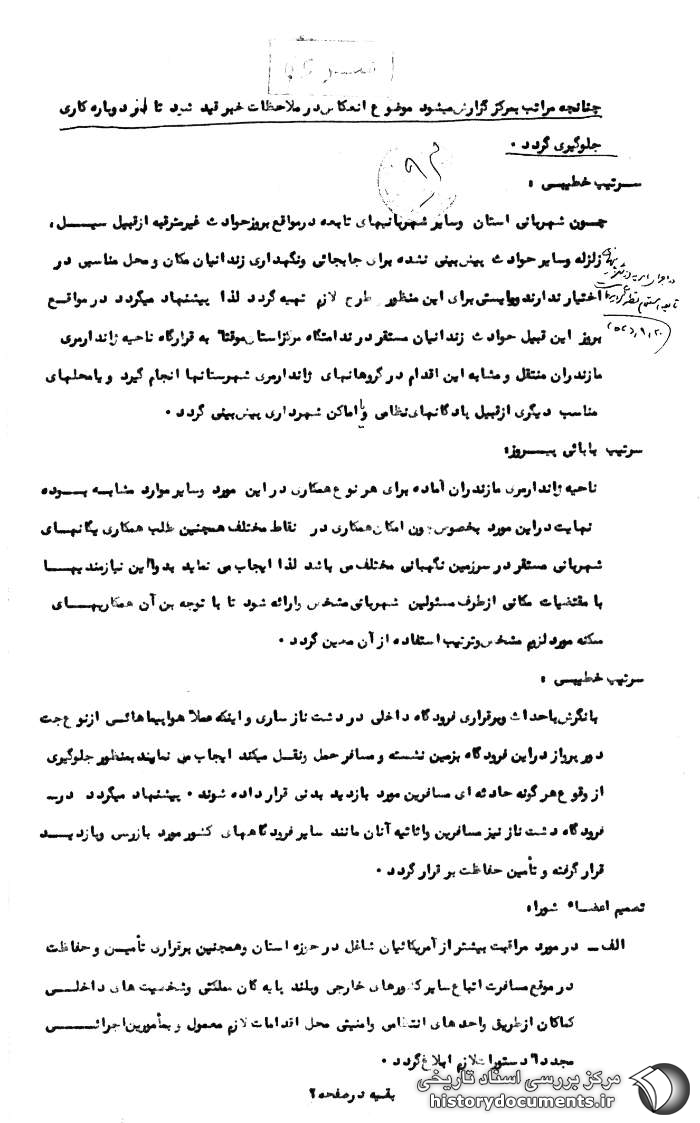 چنانچه مراتب بمرکز گزارش میشود موضوع انعکاس در ملاحظات خبر قید شود تا از دوباره کاری
جلوگیری گردد ۰
سرتیپ خطیبی :
چون شهربانی استان وسایر شهربانیهای تابعه درمواقع بروزحوادث غیرمترقبه ازقبیل سیل ،
زلزله وسایر حوادث پیش‌بینی نشده برای جابجائی ونگهداری زندانیان مکان و محل مناسبی در
اختیار ندارند وبایستی برای این منظور طرح لازم تهیه گردد لذا پیشنهاد میگردد در مواقع
بروز این قبیل حوادث زندانیان مستقر در ندامتگاه مرکزاستان موقتا" به قرارگاه ناحیه ژاندارمری
مازندران منتقل و مشابه این اقدام در گروهانهای ژاندارمری شهرستانها انجام گیرد و یامحلهای
مناسب دیگری ازقبیل پادگانهای نظامی ویا اماکن شهرداری پیش‌بینی گردد ۰
سرتیپ بابائی پیروز:
ناحیه ژاندارمری مازندران آماده برای هر نوع همکاری در این مورد وسایر موارد مشابه بوده
نهایت دراین مورد بخصوص چون امکان همکاری در نقاط مختلف همچنین طلب همکاری یگانهای
شهربانی مستقر در سرزمین نگهبانی مختلف می باشد لذا ایجاب می نماید بدوا"این نیازمندیها
با مقتضیات مکانی ازطرف مسئولین شهربانی مشخص وارائه شود تا با توجه بن آن همکاریهای
ممکنه مورد لزوم مشخص وترتیب استفاده از آن معین گردد ۰
سرتیپ خطیبی :
بانگرش باحداث وبرقراری فرودگاه داخلی در دشت ناز ساری و اینکه عملا" هواپیماهائی ازنوع جت
دور پرواز دراین فرودگاه بزمین نشسته و مسافر حمل ونقل میکند ایجاب می نمایند بمنظور جلوگیری
از وقوع هر گونه حادثه ای مسافرین مورد بازدید بدنی قرار داده شوند ۰ پیشنهاد میگردد در
فرودگاه دشت ناز نیز مسافرین واثاثیه آنان مانند سایر فرودگاههای کشور مورد بازرسی وبازدید
قرار گرفته و تأمین حفاظت بر قرار گردد ۰
تصمیم اعضاء شورا:
الف ـ در مورد مراقبت بیشتر از آمریکائیان شاغل در حوزه استان وهمچنین برقراری تأمین و حفاظت
در موقع مسافرت اتباع سایر کشورهای خارجی وبلند پایه گان مملکتی وشخصیت های داخلی
کماکان ازطریق واحد های انتظامی وامنیتی محل اقدامات لازم معمول و بمأمورین اجرائی
مجددا" دستورات لازم ابلاغ گردد ۰
بقیه در صفحه ۲
مرکز بررسی اسناد تاریخی
historydocuments.ir